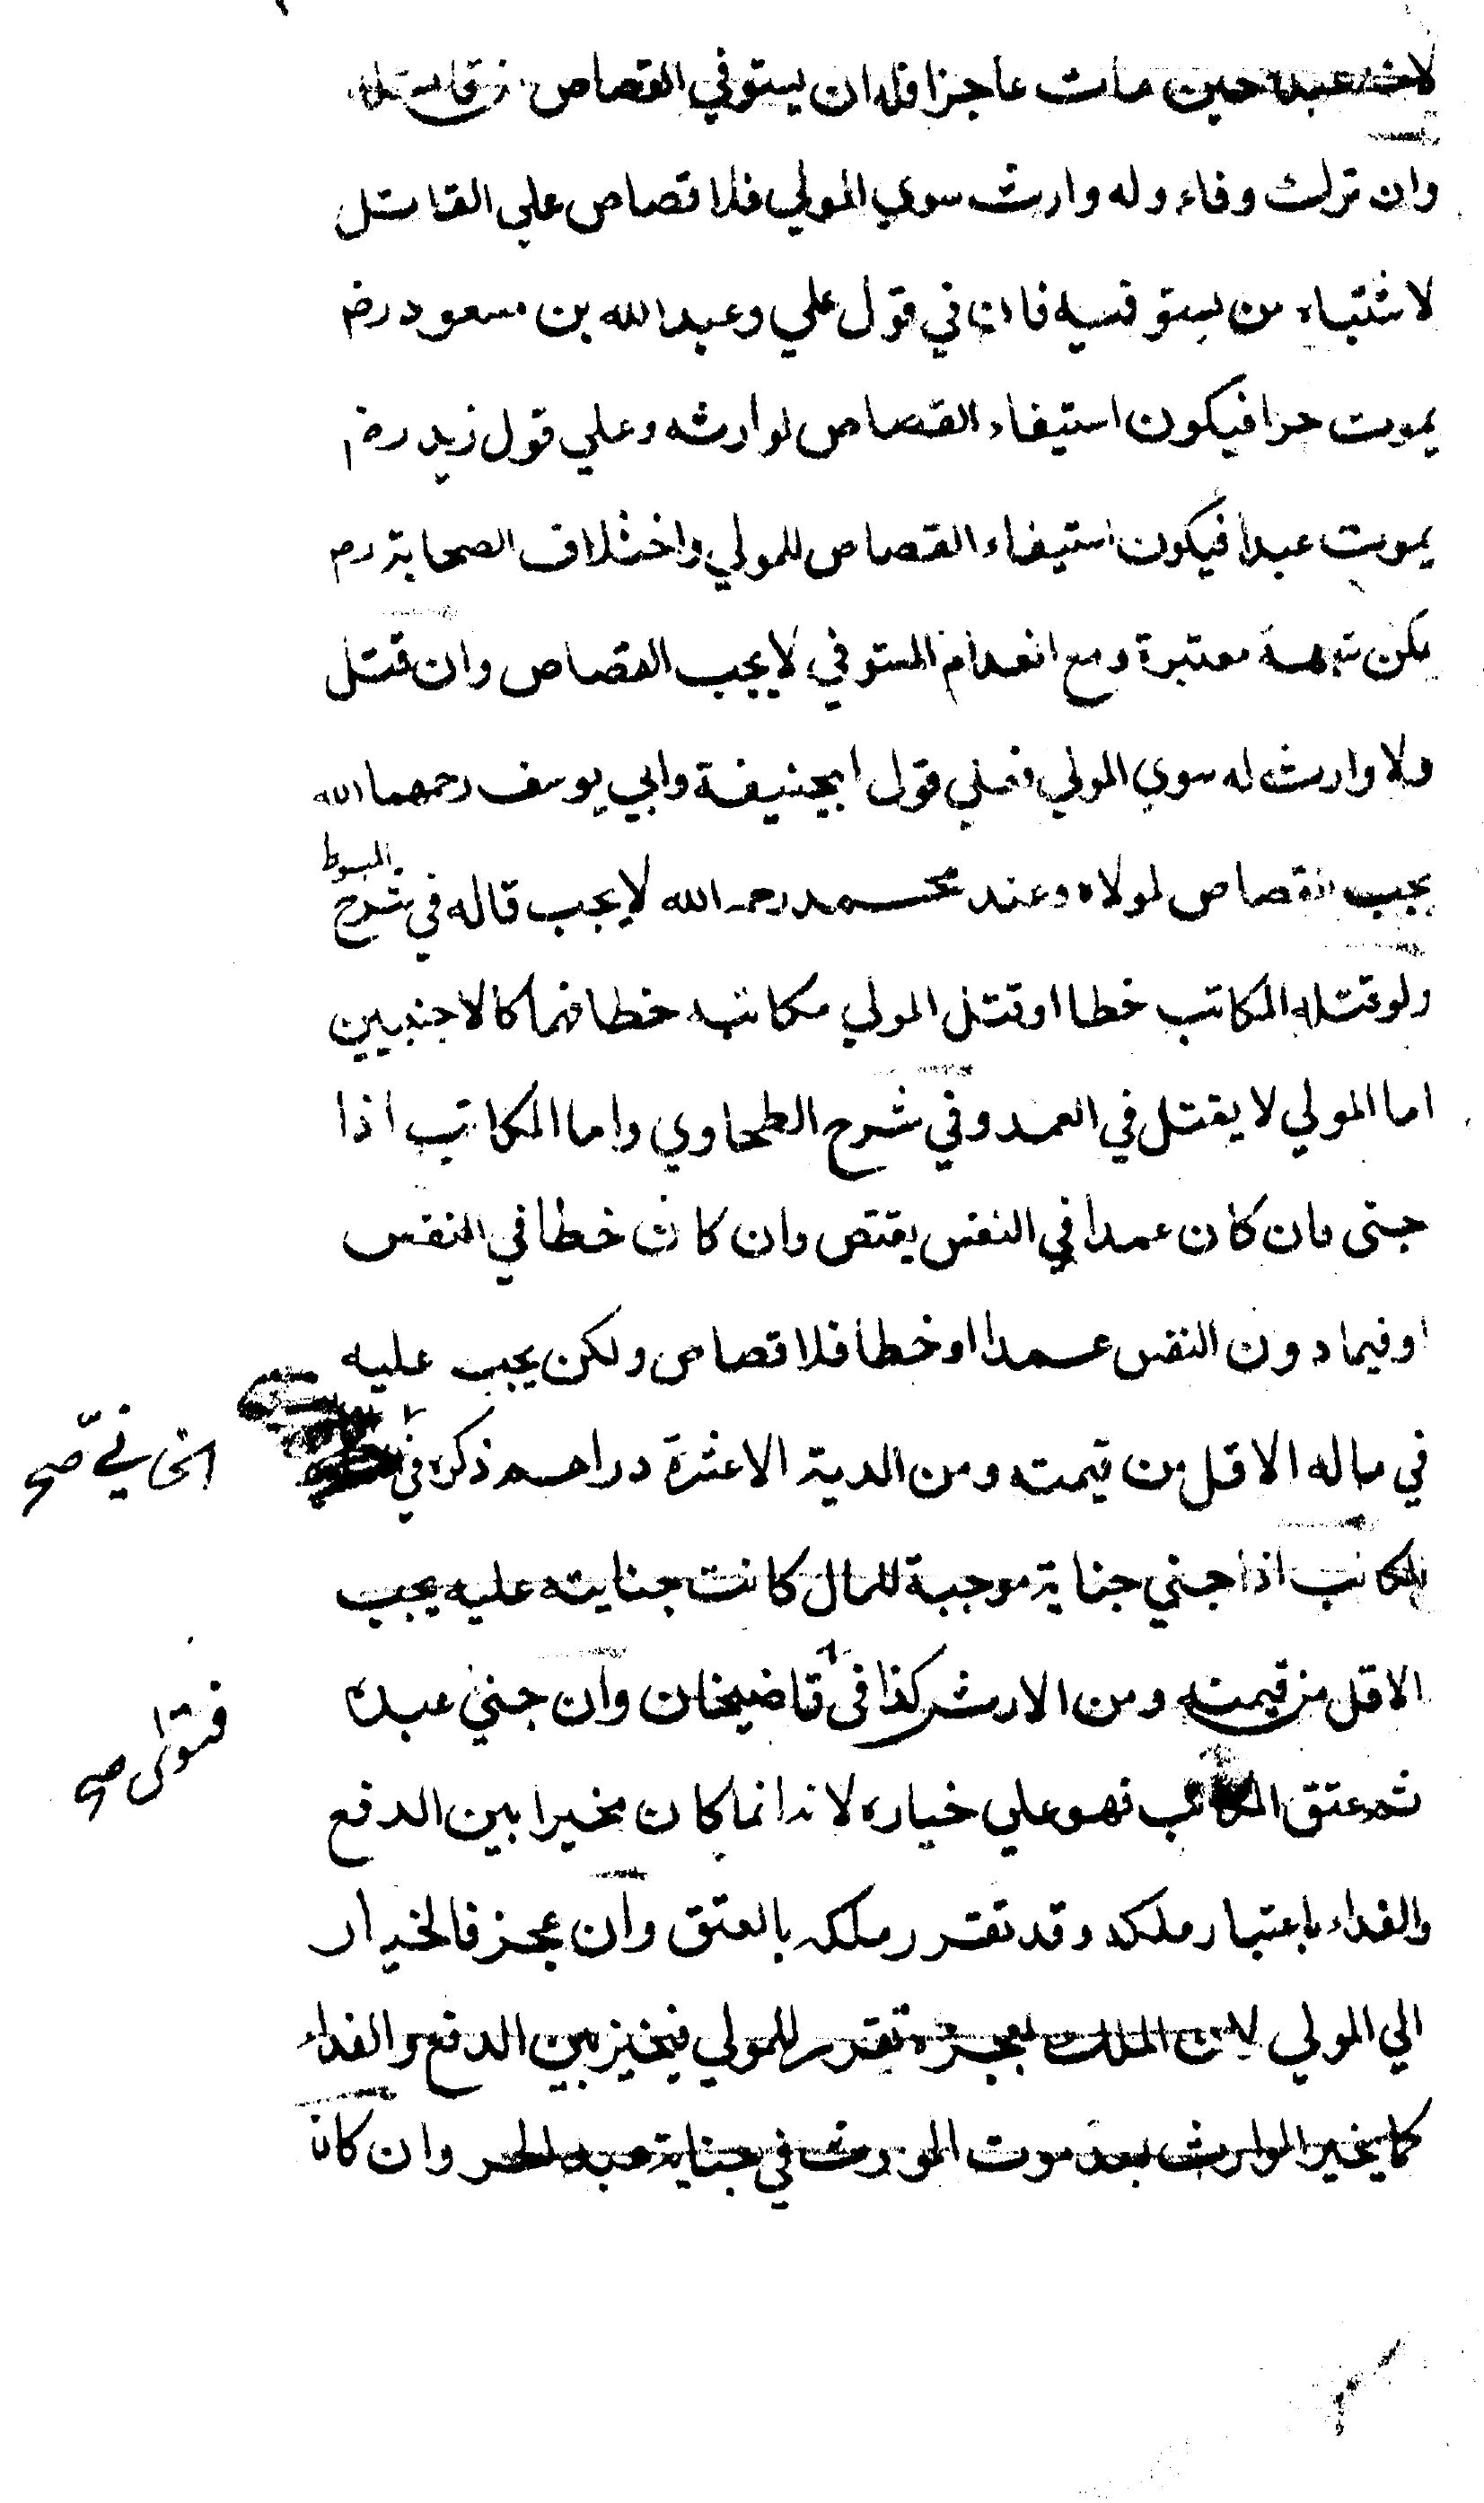 لانه عبد حين مات عاجزا فله ان يستوفي القصاص من قاتله
وان ترك وفاء وله وارث سوي المولي فلا قصاص علي القاتل
لاشتباه من يستوفيه فان في قول علي وعبد الله بن مسعود رض
يموت حرا فيكون استيفاء القصاص لوارثه وعلي قول زيد رض
يموت عبدا فيكون استيفاء القصاص للمولي واختلاف الصحابة رض
يمكن شبهة معتبرة ومع انعدام المستوفي لا يجب القصاص وان قتل
ولا وارث له سوي المولي فعلي قول ابيحنيفة وابي يوسف رحمهما الله
يجب القصاص لمولاه وعند محمد رحمه الله لا يجب قاله في شرح المبسوط
ولو قتله المكاتب خطا او قتل المولي مكاتبه خطا فهما كالاجنبيين
اما المولي لا يقتل في العمد وفي شرح الطحاوي واما المكاتب اذا
جنى وان كان عمدا في النفس يقتص وان كان خطا في النفس
او فيما دون النفس عمدا او خطا فلا قصاص ولكن يجب عليه
في ماله الاقل من قيمته ومن الدية الا عشرة دراهم ذكره في
الخانيّ صح
المكاتب اذا جني جناية موجبة للمال كانت جنايته عليه يجب
الاقل من قيمته ومن الارش كذا في قاضيخان وان جني عبده
فتوى صح
ثم عتق المكاتب فهو علي خياره لانه انما كان مخيرا بين الدفع
والفداء باعتبار ملكه وقد تقرر ملكه بالعتق وان عجز فالخيار
الي المولي لان الملك بعجزه تقرر للمولي فيخير بين الدفع والفداء
كما يخير الوارث بعد موت المورث في جناية عبد الحر وان كان